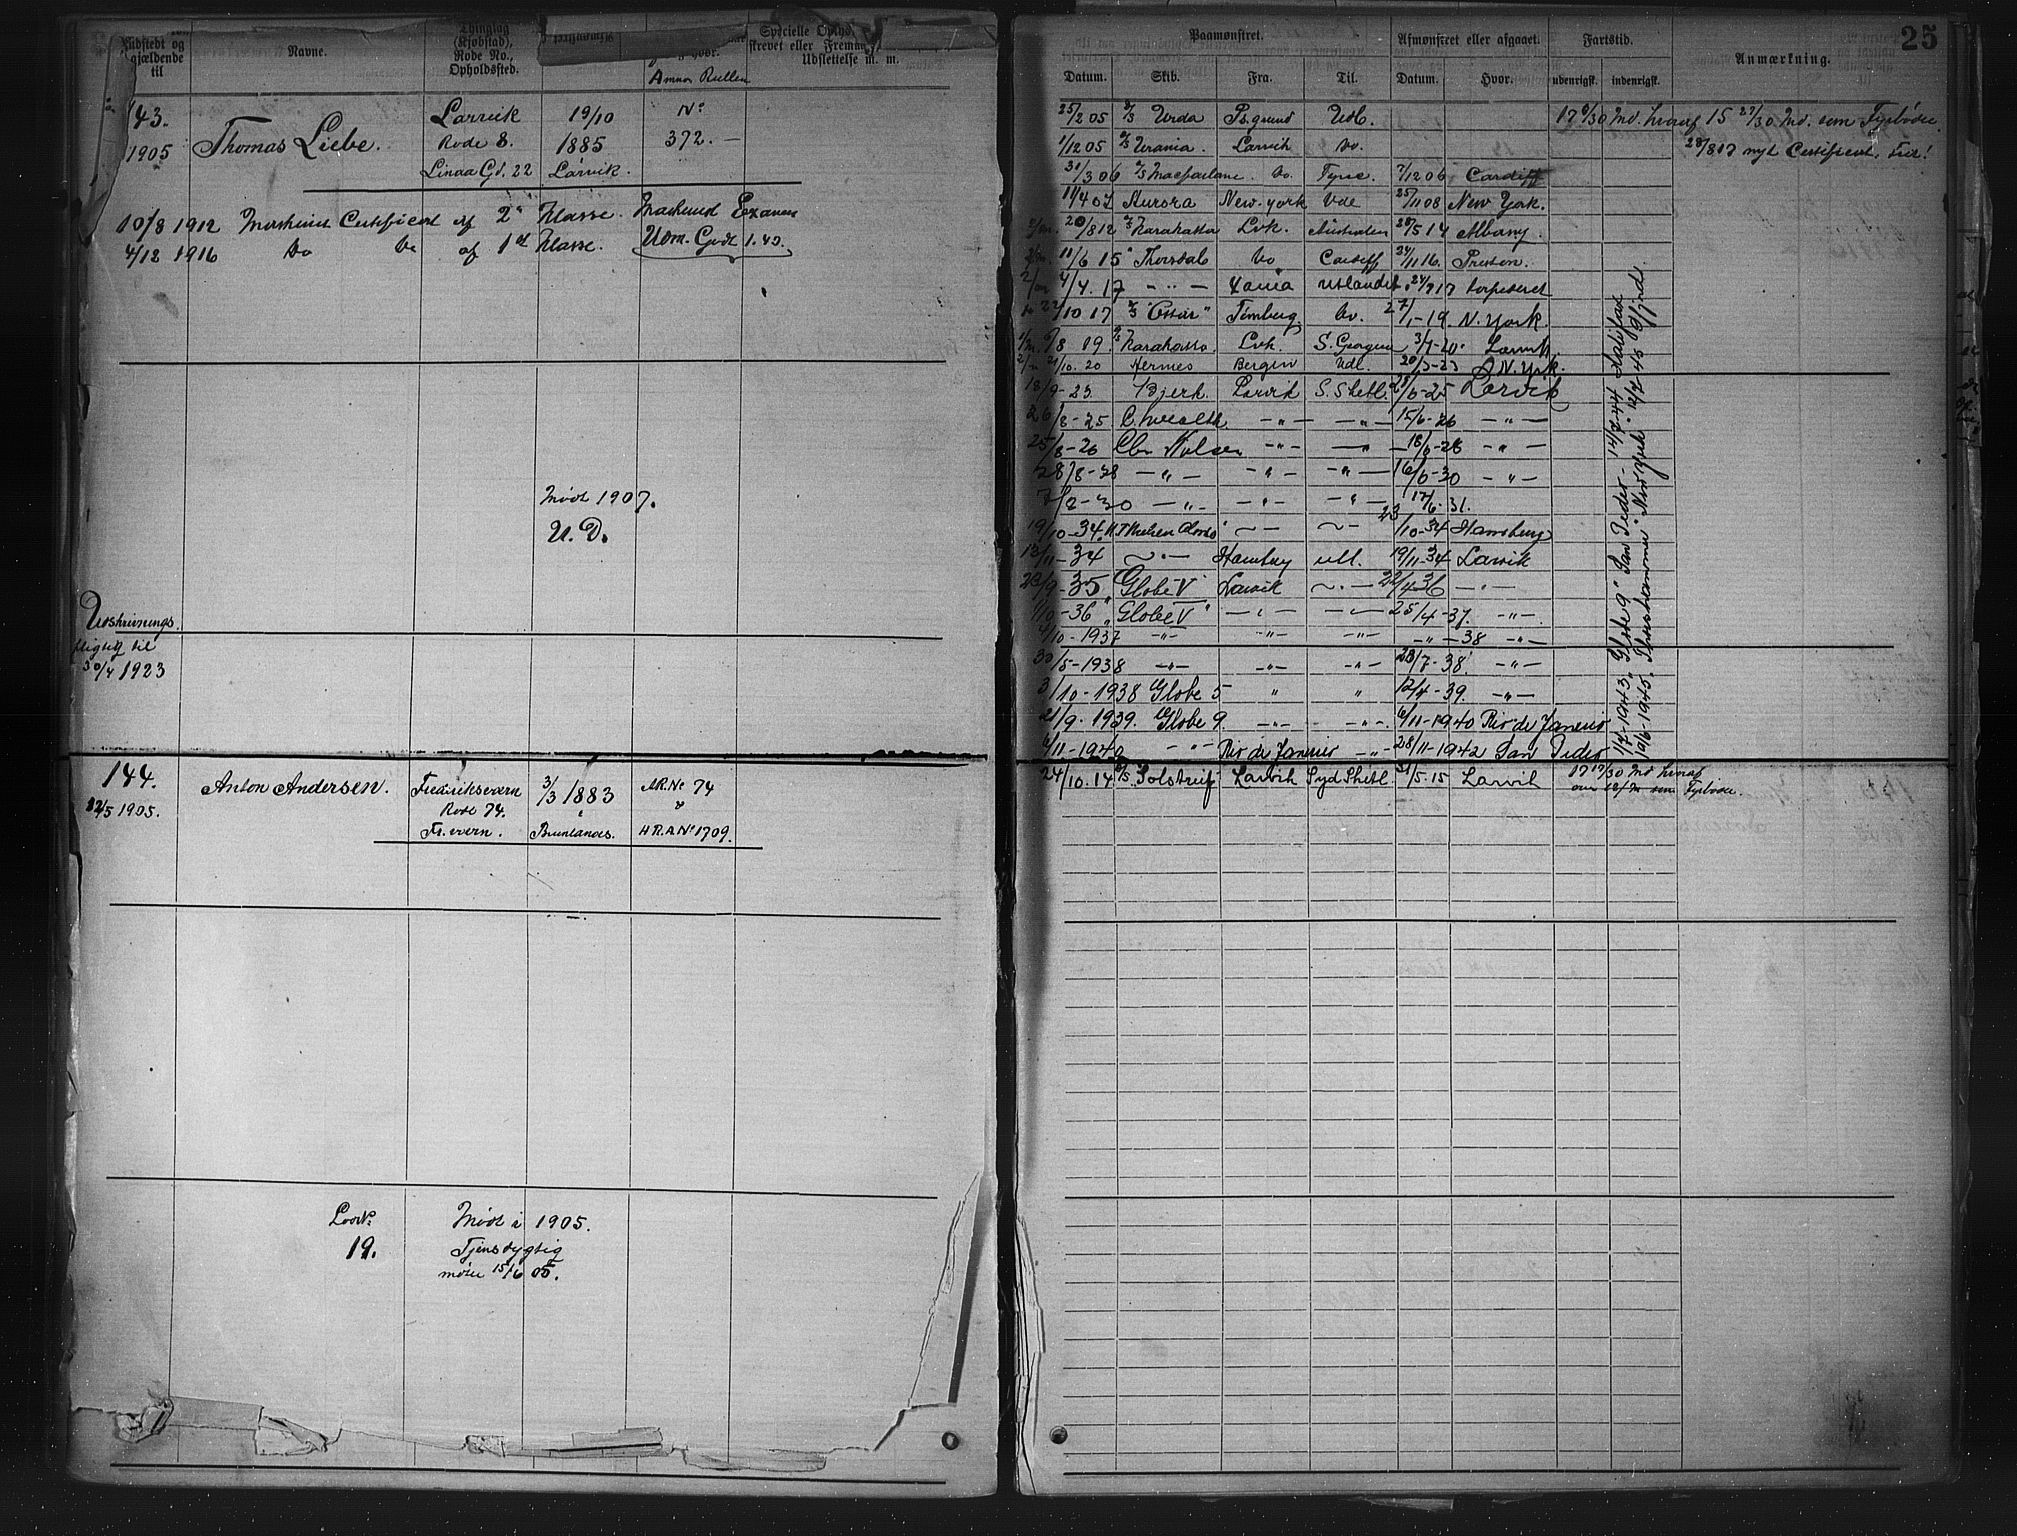 Udstedt og
gjældende
til
Navne.
Thinglag
(Kjøbstad),
Rode No.,
Opholdssted.
Hvor.
Annor Rullen
Specielle Ophold
Udslettelse m. m.
143.
1905
Thomas Liebe.
Larvik
Rode 8.
Linaa Gd. 22
19/10
1885
Larvik.
No
372. —
10/8 1912 Maskinist Certificat af 2n Klasse. Maskinist Examen
4/12 1916 Do Do af 1st Klasse. Udm. Godt 1.45.
Mødt 1907.
U. D.
Udskrivnings
pligtig til
30/4 1923
144.
12/5 1905.
Anton Andersen.
Fredriksværn
Rode 74.
Fr. værn.
3/3 1883
Brunlanæs.
A.R.No 74
H.R.A No 1709.
Larv.
19.
Mødt i 1905.
Tjenstdygtig
møtte 15/6 05.
25
Paamønstret.
Afmønstret eller afgaaet.
Fartstid.
Anmærkning.
Datum. Skib. Fra. Til. Datum. Hvor. udenrigsk. indenrigsk.
25/2 05 S/S Urda Ps.grund Udl. 17 6/30 Md. hvoraf 15 27/30 Md. som Fyrbøder
1/12 05 S/S Urania. Larvik Do. 28/8 17 nyt Certificat
31/3 06 S/S Macfarlane. Do Tyne. 7/12 06 Cardiff
11/4 07 Aurora New-york Ude 25/11 08 New York.
20/8 12 S/S Karakassa Lvk. Australien 28/5 14 Albany.
11/6 15 " Thorsdal Do Cardiff 24/11 16. Preston.
4/4. 17 — " — Xania Utlandet. 24/7 17 torpederet
22/10 17 S/S "Ossar" Tønsberg Do. 27/1-19. N. York.
6/8 19. S/S Karakassa. Lvk. S. Georgia 3/7-20. Larvik.
21/10. 20 Hermes Bergen Udl. 20/3-23 N. York.
18/9-23. Bjerk Larvik S. Shetl. 28/6-25 Larvik
26/8-25 C. hvealth — " — — " — 15/6-26 — " —
25/8-26 Chr Nilsen — " — — " — 18/6-28 — " —
28/8-28 — " — — " — — " — 16/6-30 — " —
7/2-30 — " — — " — — " — 17/6-31.
19/10-34. N.T. Nielsen Alonso 23/10-34 Hamburg
13/11-34 — " — Hamburg utl. 19/11-34 Larvik
23/9-35 "Globe V" Larvik — " — 22/4-36 — " —
1/10-36 "Globe V" — " — — " — 25/4-37. — " —
4/10-1937 — " — — " — — " — — " — 38 — " —
30/5-1938 — " — — " — — " — 23/7-38. — " —
3/10-1938 Globe 5 " " 12/4-39. — " —
21/9-1939. Globe 9 — " — — " — 6/11-1940 Rio de Janeiro
6/11-1940 — " — Rio de Janeiro — " — 28/11-1942 San Pedro
1/7-1943. "Globe 9" San Pedro - 14/2-44 Halifax
19/6-1945. "Thorshammer" New York 12/7-45 g/fjord.
24/10. 14 S/S Solstreif Larvik Syd Shetl 31/5-15 Larvik 17 17/30 Md hvoraf
over 12/m som Fyrbøder.